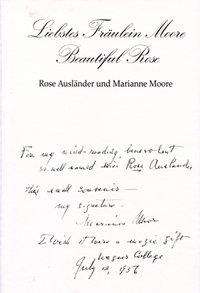 Liebstes Fräulein Moore
Beautiful Rose
Rose Ausländer und Marianne Moore
For my mind-reading benevolent
so well named Miss Rose Ausländer,
this small souvenir —
my signature.
Marianne Moore
I wish it were a magic gift
Wagner College
July 1956